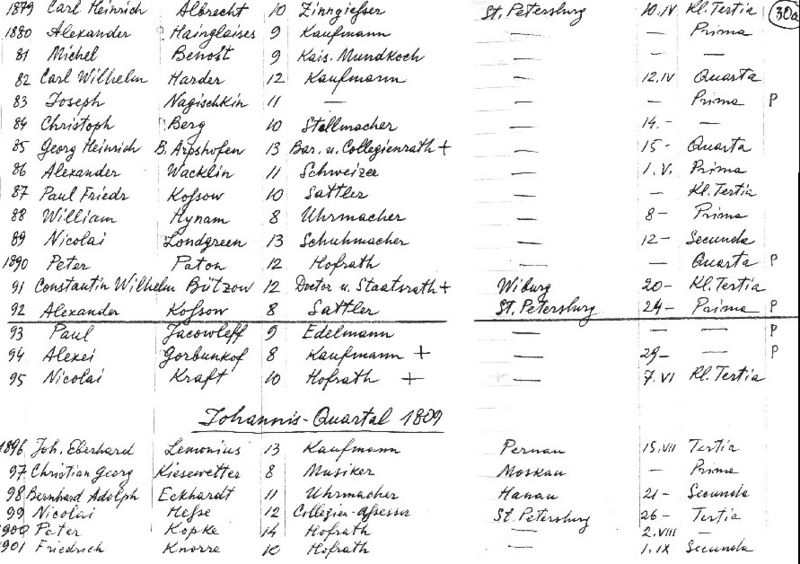 1879 Carl Heinrich Albrecht 10 Zinngießer St. Petersburg 10.IV Kl. Tertia 30a
1880 Alexander Hainglaises 9 Kaufmann — — Prima
81 Michel Benoît 9 Kais. Mundkoch — — —
82 Carl Wilhelm Harder 12 Kaufmann — 12.IV Quarta
83 Joseph Nagischkin 11 — — — Prima P
84 Christoph Berg 10 Stellmacher — 14.- —
85 Georg Heinrich B. Arpshofen 13 Bar. u. Collegienrath + — 15- Quarta
86 Alexander Wacklin 11 Schweizer — 1.V. Prima
87 Paul Friedr Koßow 10 Sattler — — Kl. Tertia
88 William Hynam 8 Uhrmacher — 8- Prima
89 Nicolai Londgreen 13 Schuhmacher — 12- Secunda
1890 Peter Paton 12 Hofrath — — Quarta P
91 Constantin Wilhelm Bützow 12 Doctor u. Staatsrath + Wiburg 20- Kl. Tertia
92 Alexander Koßow 8 Sattler St. Petersburg 24- Prima P
93 Paul Jacowleff 9 Edelmann — — — P
94 Alexei Gorbunkof 8 Kaufmann + — 29- — P
95 Nicolai Kraft 10 Hofrath + — 7.VI Kl. Tertia
Johannis-Quartal 1809
1896 Joh. Eberhard Lemonius 13 Kaufmann Pernau 15.VII Tertia
97 Christian Georg Kiesewetter 8 Musiker Moskau — Prima
98 Bernhard Adolph Eckhardt 11 Uhrmacher Hanau 21- Secunda
99 Nicolai Heße 12 Collegien-Assessor St. Petersburg 26- Tertia
1900 Peter Köpke 14 Hofrath — 2.VIII —
1901 Friedrich Knorre 10 Hofrath — 1.IX Secunda